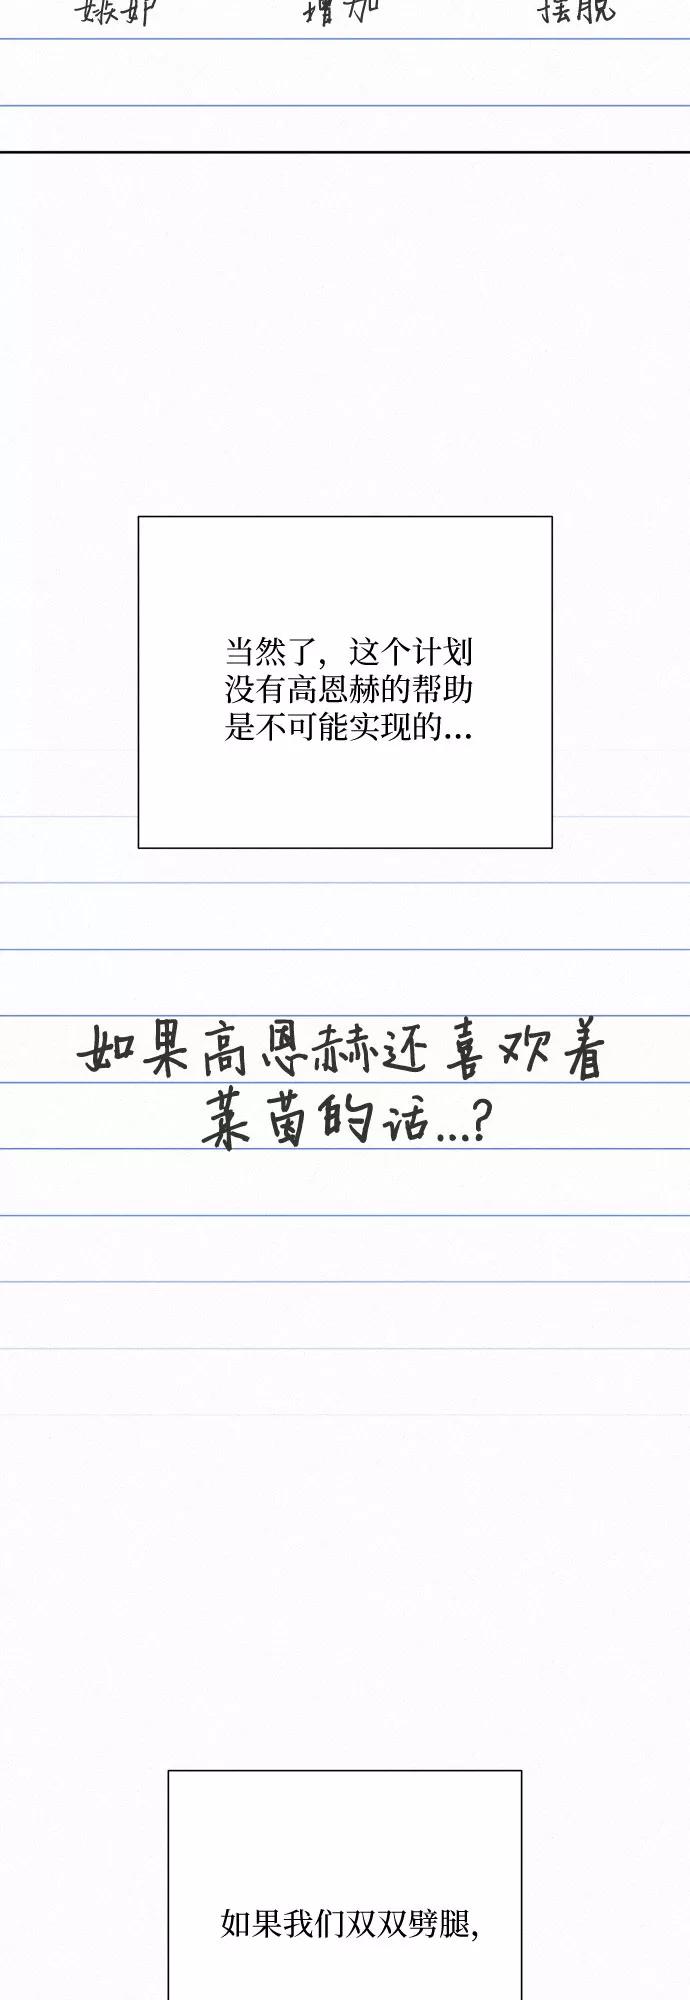 嫉妒 增加 摆脱
当然了，这个计划
没有高恩赫的帮助
是不可能实现的...
如果高恩赫还喜欢着
莱茵的话...?
如果我们双双劈腿,